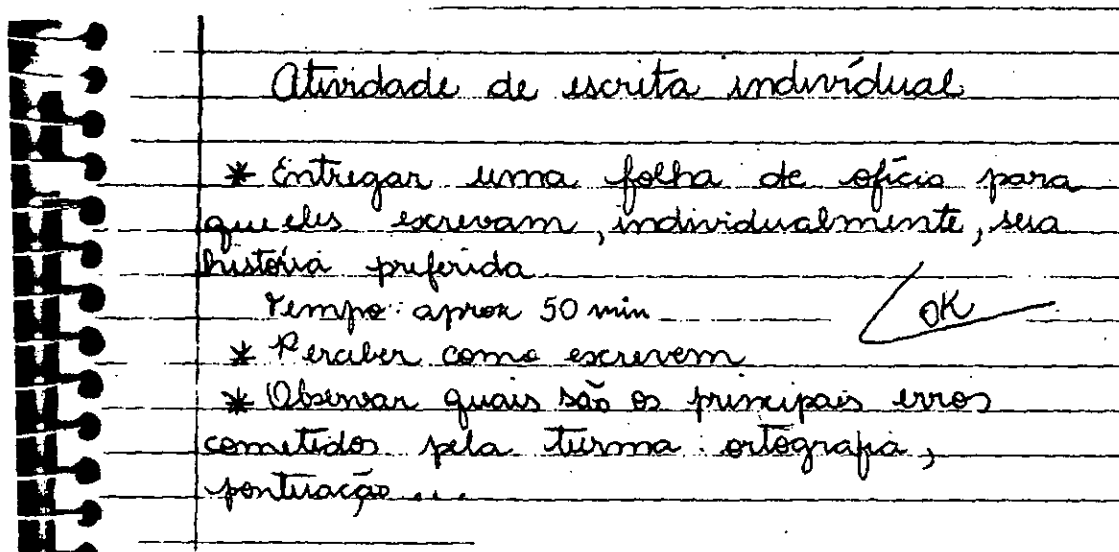 Atividade de escrita individual
* Entregar uma folha de ofício para
que eles escrevam, individualmente, sua
história preferida
Tempo: aprox 50 min
OK
* Perceber como escrevem
* Observar quais são os principais erros
cometidos pela turma: ortografia,
pontuação...